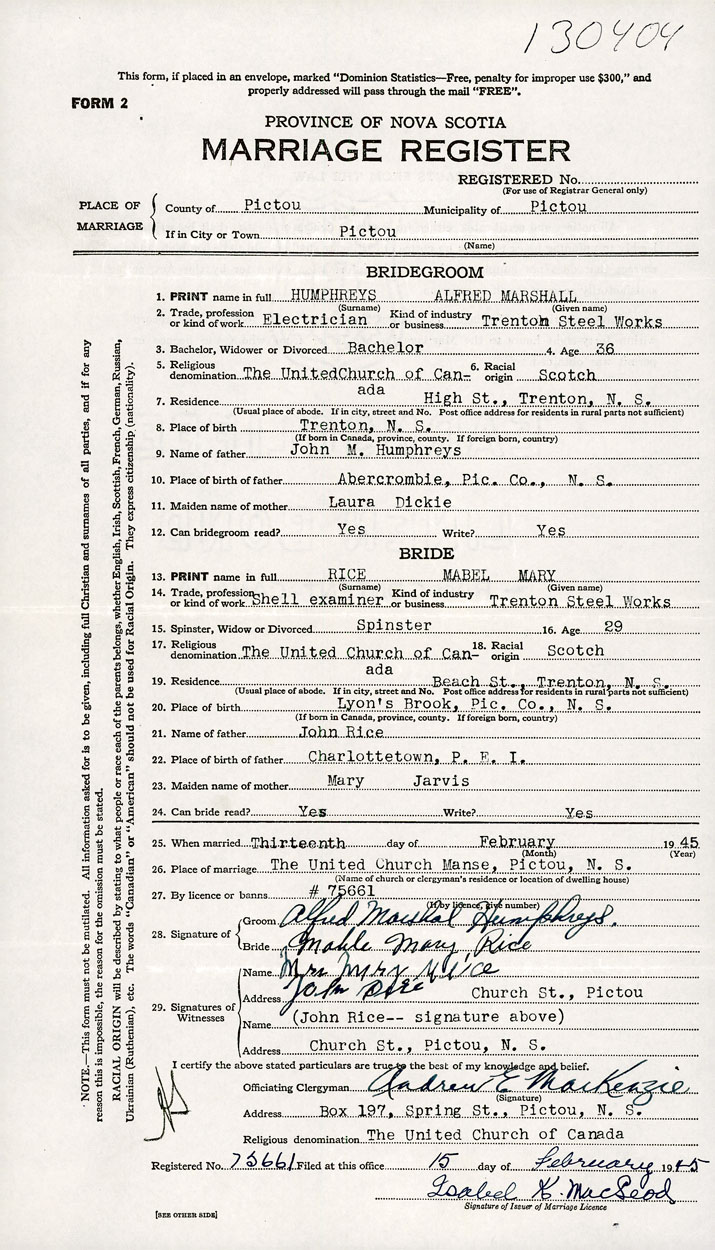 130404
This form, if placed in an envelope, marked "Dominion Statistics—Free, penalty for improper use $300," and
properly addressed will pass through the mail "FREE".
FORM 2
PROVINCE OF NOVA SCOTIA
MARRIAGE REGISTER
REGISTERED No.
(For use of Registrar General only)
PLACE OF MARRIAGE
County of Pictou Municipality of Pictou
If in City or Town Pictou
(Name)
BRIDEGROOM
1. PRINT name in full HUMPHREYS ALFRED MARSHALL
(Surname) (Given name)
2. Trade, profession or kind of work Electrician Kind of industry or business Trenton Steel Works
3. Bachelor, Widower or Divorced Bachelor 4. Age 36
5. Religious denomination The UnitedChurch of Can- 6. Racial origin Scotch
ada
7. Residence High St., Trenton, N. S.
(Usual place of abode. If in city, street and No. Post office address for residents in rural parts not sufficient)
8. Place of birth Trenton, N. S.
(If born in Canada, province, county. If foreign born, country)
9. Name of father John M. Humphreys
10. Place of birth of father Abercrombie, Pic. Co., N. S.
11. Maiden name of mother Laura Dickie
12. Can bridegroom read? Yes Write? Yes
BRIDE
13. PRINT name in full RICE MABEL MARY
(Surname) (Given name)
14. Trade, profession or kind of work Shell examiner Kind of industry or business Trenton Steel Works
15. Spinster, Widow or Divorced Spinster 16. Age 29
17. Religious denomination The United Church of Can- 18. Racial origin Scotch
ada
19. Residence Beach St., Trenton, N. S.
(Usual place of abode. If in city, street and No. Post office address for residents in rural parts not sufficient)
20. Place of birth Lyon's Brook, Pic. Co., N. S.
(If born in Canada, province, county. If foreign born, country)
21. Name of father John Rice
22. Place of birth of father Charlottetown, P. E. I.
23. Maiden name of mother Mary Jarvis
24. Can bride read? Yes Write? Yes
25. When married Thirteenth day of February 1945
(Month) (Year)
26. Place of marriage The United Church Manse, Pictou, N. S.
(Name of church or clergyman's residence or location of dwelling house)
27. By licence or banns # 75661
(If by licence, give number)
28. Signature of Groom Alfred Marshal Humphreys.
Bride Mable Mary Rice
29. Signatures of Witnesses
Name Mrs Mary Rice
John Rice
Address Church St., Pictou
Name (John Rice-- signature above)
Address Church St., Pictou, N. S.
I certify the above stated particulars are true to the best of my knowledge and belief.
Officiating Clergyman Andrew E MacKenzie
(Signature)
Address Box 197, Spring St., Pictou, N. S.
Religious denomination The United Church of Canada
Registered No. 75661 Filed at this office 15 day of February 1945
Isabel K. MacLeod
Signature of Issuer of Marriage Licence
[SEE OTHER SIDE]
NOTE.—This form must not be mutilated. All information asked for is to be given, including full Christian and surnames of all parties, and if for any
reason this is impossible, the reason for the omission must be stated.
RACIAL ORIGIN will be described by stating to what people or race each of the parents belongs, whether English, Irish, Scottish, French, German, Russian,
Ukrainian (Ruthenian), etc. The words "Canadian" or "American" should not be used for Racial Origin. They express citizenship (nationality).